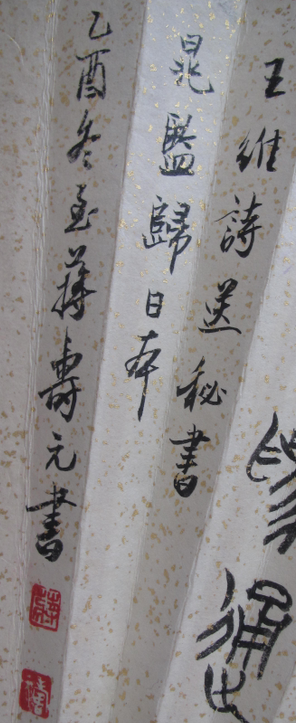 通
王維詩送秘書
晁監歸日本
乙酉冬至蔣壽元書